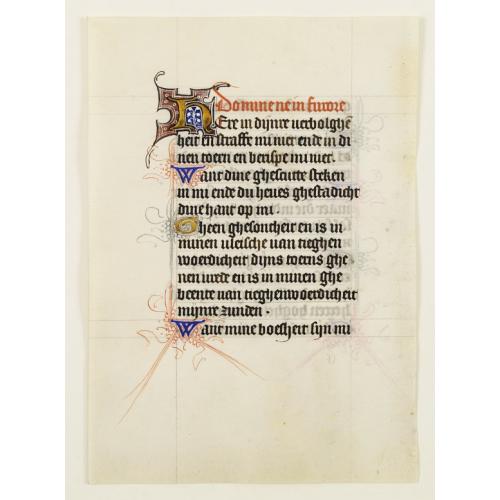 Domine ne in furore
Here in dijnre verbolghē
heit en straffe mi niet ende in di
nen toern en berispe mi niet.
Want dine ghescutte steken
in mi ende du heves ghestadicht
dine hant op mi.
Gheen ghesontheit en is in
minen vleische van tieghen
woerdicheit dijns toerns ghe
nen vrede en is in minen ghe
beente van tieghenwoerdicheit
mijnre zunden.
Want mine boesheit sijn mi